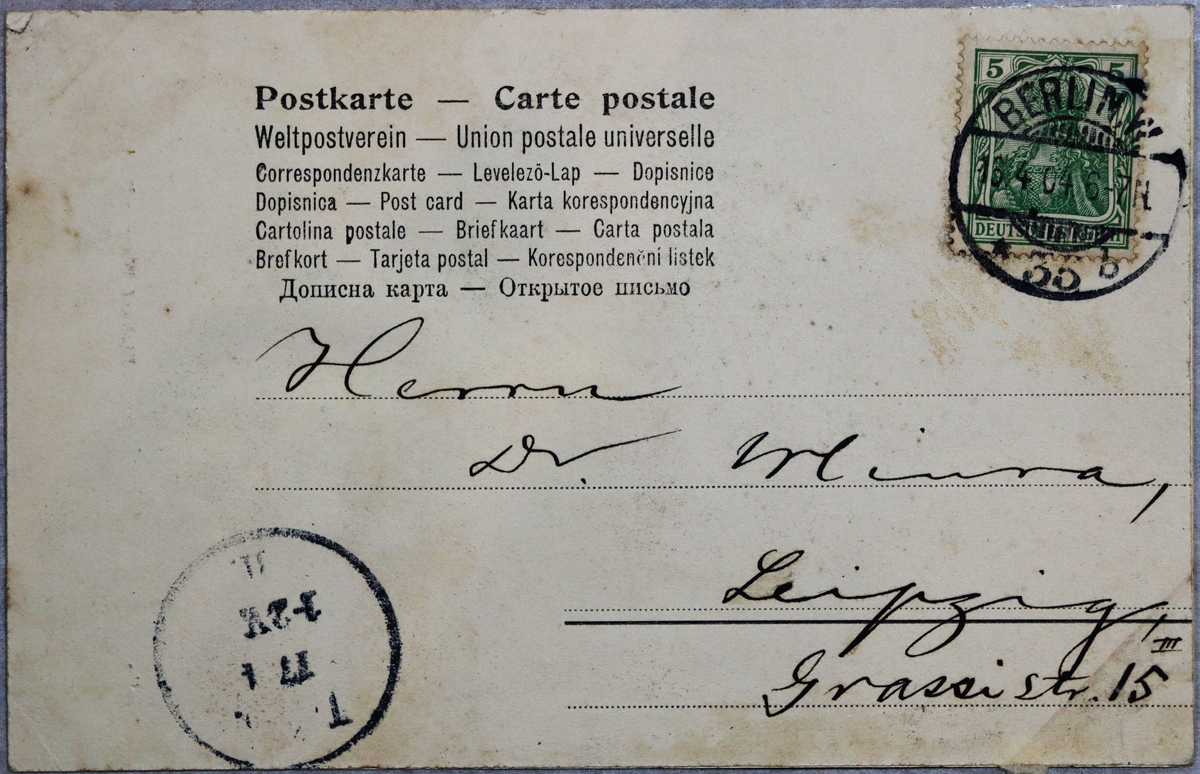 Postkarte — Carte postale
Weltpostverein — Union postale universelle
Correspondenzkarte — Levelezō-Lap — Dopisnice
Dopisnica — Post card — Karta korespondencyjna
Cartolina postale — Briefkaart — Carta postala
Brefkort — Tarjeta postal — Korespondenčni listek
Дописна карта — Открытое письмо
5 5
DEUTSCHES REICH
BERLIN W.
16.4.04.6-7N
* 35 b
Herrn
Dr. Miura,
Leipzig,
III
Grassistr. 15